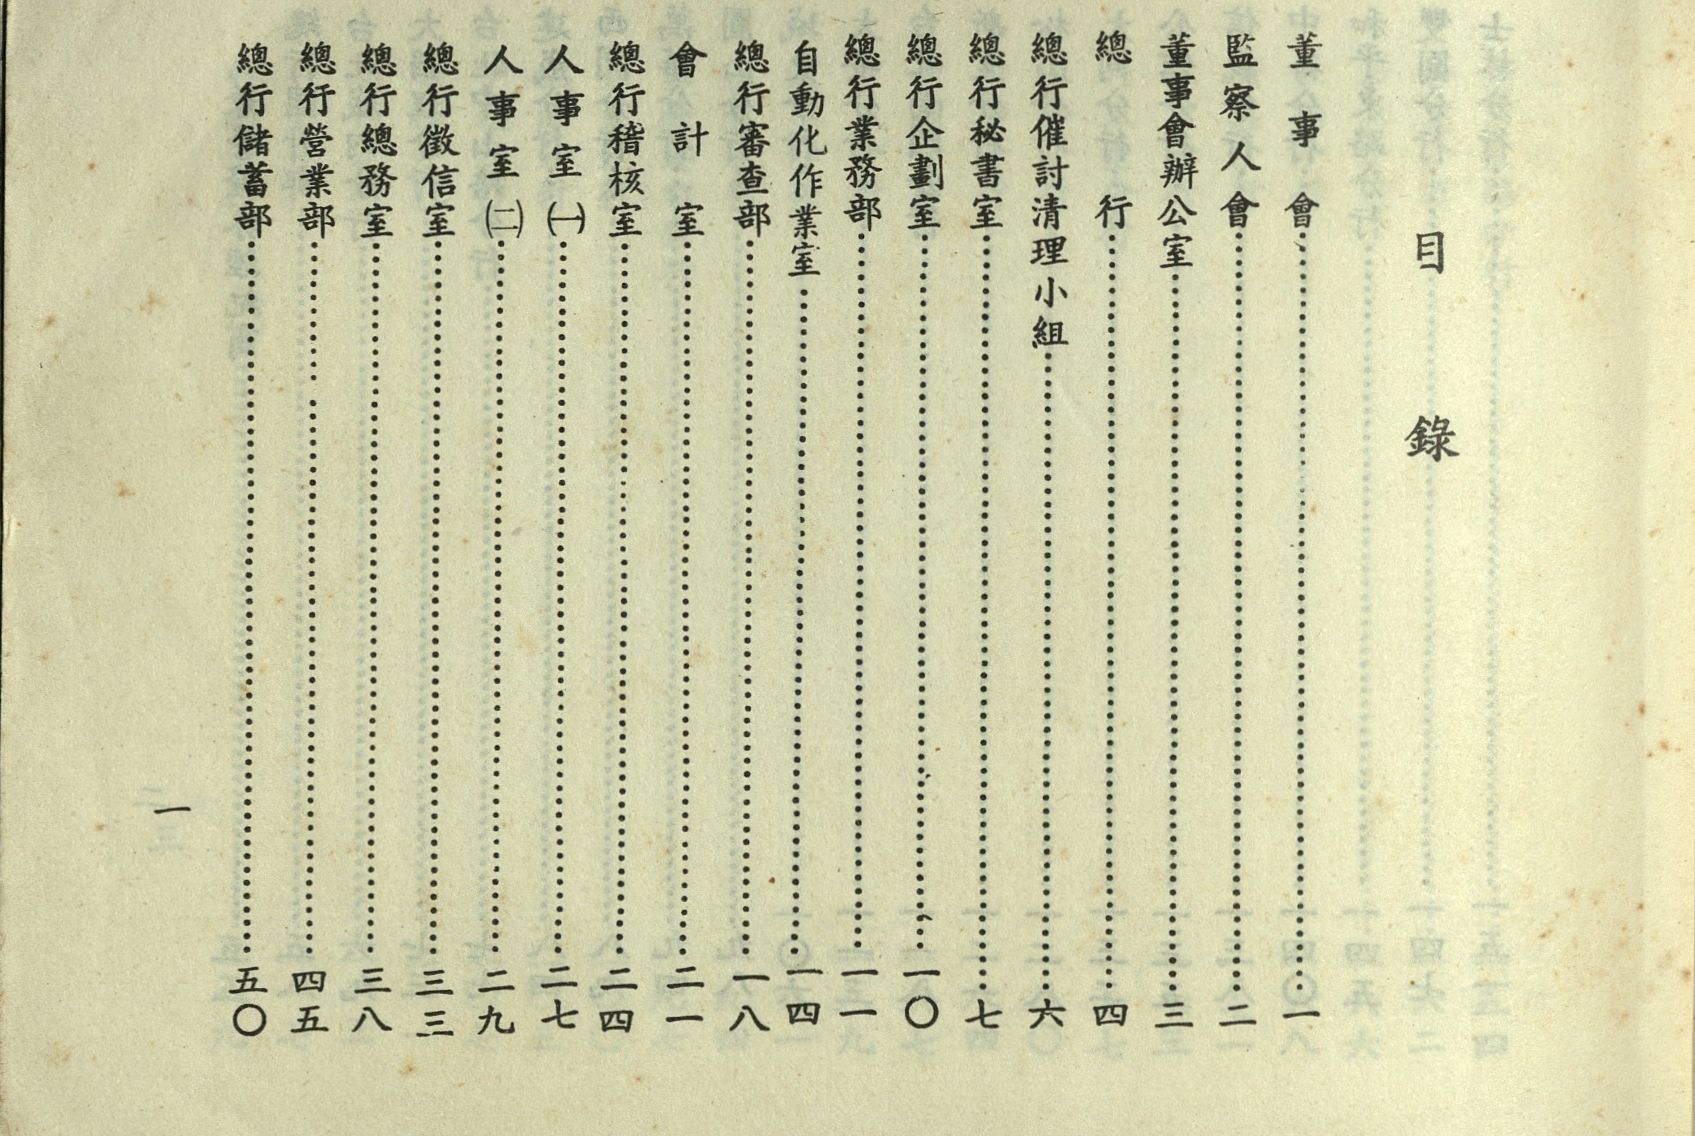 目錄
董事會……一
監察人會……二
董事會辦公室……三
總行……四
總行催討清理小組……六
總行秘書室……七
總行企劃室……一〇
總行業務部……一一
自動化作業室……一四
總行審查部……一八
會計室……二一
總行稽核室……二四
人事室㈠……二七
人事室㈡……二九
總行徵信室……三三
總行總務室……三八
總行營業部……四五
總行儲蓄部……五〇
一